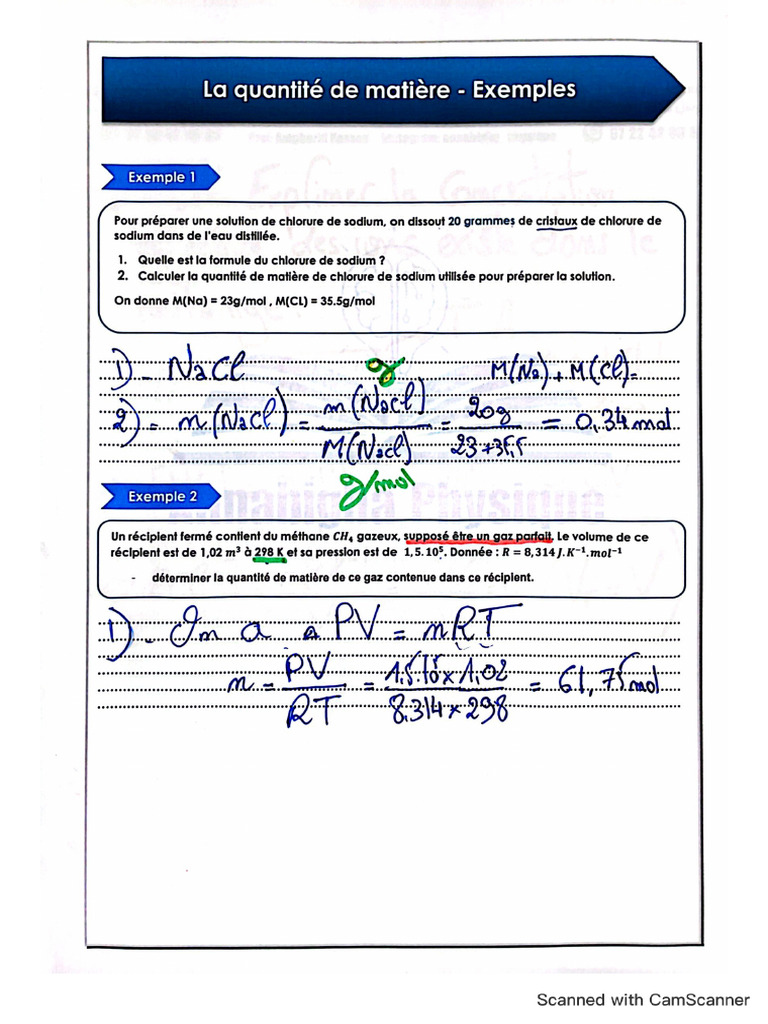 La quantité de matière - Exemples
Exemple 1
Pour préparer une solution de chlorure de sodium, on dissout 20 grammes de cristaux de chlorure de
sodium dans de l'eau distillée.
1. Quelle est la formule du chlorure de sodium ?
2. Calculer la quantité de matière de chlorure de sodium utilisée pour préparer la solution.
On donne M(Na) = 23g/mol , M(CL) = 35.5g/mol
1) - NaCl
g
M(Na) + M(Cl)=
2) = n(NaCl) = m(NaCl) / M(NaCl) = 20g / 23+35,5 = 0,34 mol
g/mol
Exemple 2
Annabigha Physique
Un récipient fermé contient du méthane CH₄ gazeux, supposé être un gaz parfait. Le volume de ce
récipient est de 1,02 m³ à 298 K et sa pression est de 1,5.10⁵. Donnée : R = 8,314 J.K⁻¹.mol⁻¹
- déterminer la quantité de matière de ce gaz contenue dans ce récipient.
1) - On a PV = nRT
n = PV / RT = 1,5.10⁵ x 1,02 / 8,314 x 298 = 61,75 mol
Scanned with CamScanner